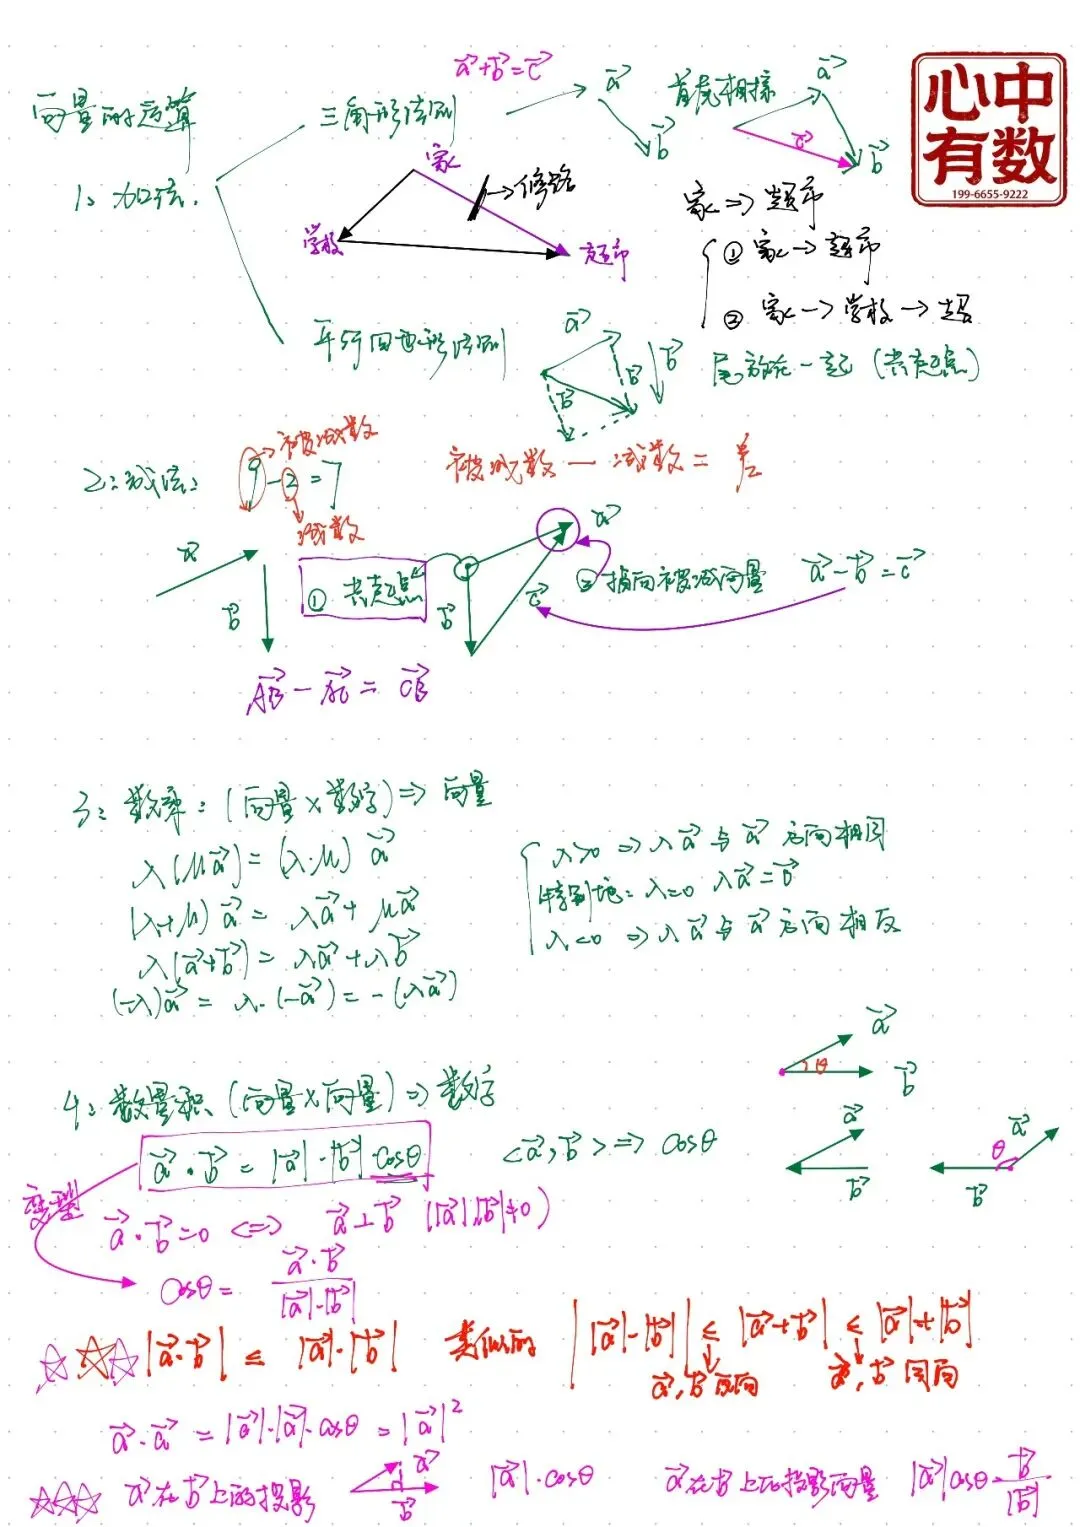 心中
有数
199-6655-9222
向量的运算
a⃗+b⃗=c⃗
三角形法则
a⃗
b⃗
首尾相接
a⃗
c⃗
b⃗
1、加法.
家
修路
学校
超市
家⇒超市
① 家→超市
② 家→学校→超
平行四边形法则
a⃗
b⃗
b⃗
b⃗
尾放在一起 (共起点)
2:减法:
9-2=7
被减数
减数
被减数-减数=差
a⃗
b⃗
① 共起点
b⃗
c⃗
a⃗
② 指向被减向量
a⃗-b⃗=c⃗
AB⃗-AC⃗=CB⃗
3:数乘:(向量×数字)⇒向量
λ(μa⃗)=(λ·μ)a⃗
(λ+μ)a⃗=λa⃗+μa⃗
λ(a⃗+b⃗)=λa⃗+λb⃗
(-λ)a⃗=λ·(-a⃗)=-(λa⃗)
λ>0 ⇒λa⃗与a⃗方向相同
特别地:λ=0 λa⃗=0⃗
λ<0 ⇒λa⃗与a⃗方向相反
4:数量积(向量×向量)⇒数字
a⃗·b⃗=|a⃗|·|b⃗|·cosθ
<a⃗,b⃗>⇒cosθ
a⃗
θ
b⃗
a⃗
b⃗
θ
a⃗
b⃗
变型
a⃗·b⃗=0 <=> a⃗⊥b⃗ (|a⃗|,|b⃗|≠0)
cosθ=a⃗·b⃗/|a⃗|·|b⃗|
|a⃗·b⃗|≤|a⃗|·|b⃗|
类似的
||a⃗|-|b⃗||≤|a⃗+b⃗|≤|a⃗|+|b⃗|
a⃗,b⃗反向
a⃗,b⃗同向
a⃗·a⃗=|a⃗|·|a⃗|·cosθ=|a⃗|²
a⃗在b⃗上的投影
a⃗
b⃗
|a⃗|·cosθ
a⃗在b⃗上的投影向量
|a⃗|cosθ·b⃗/|b⃗|